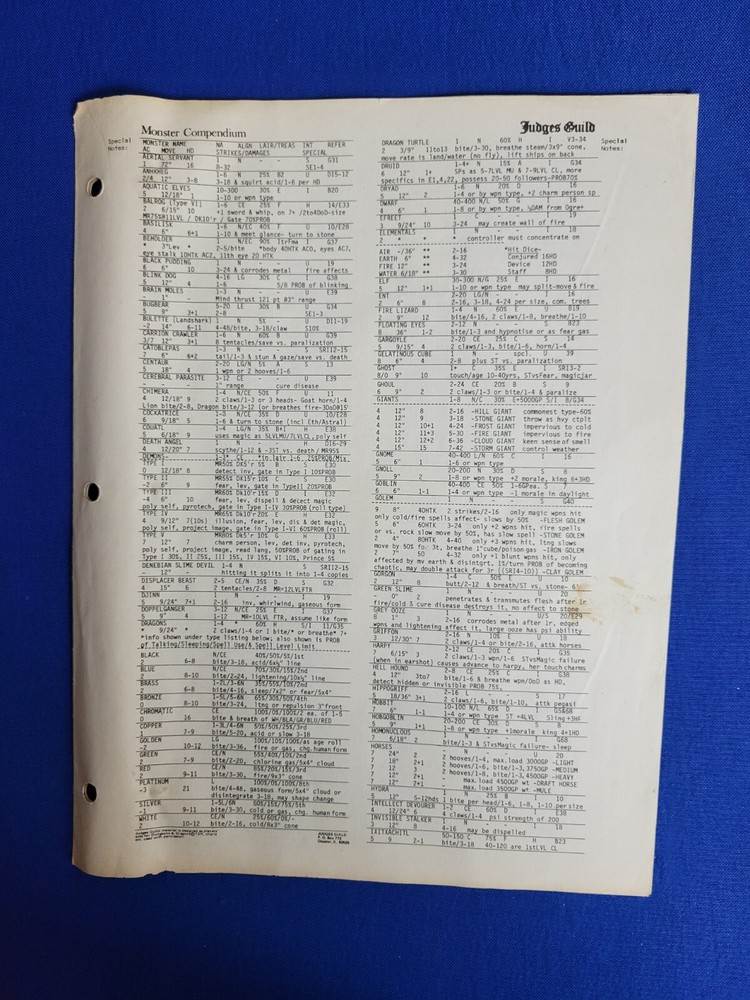 Special
Notes:
Monster Compendium
MONSTER NAME NA ALGN LAIR/TREAS INT REFER
AC MOVE HD STRIKES/DAMAGES SPECIAL
AERIAL SERVANT 1 N - - S G31
1 72" 16 8-32 SE1-4
ANHKHEG 1-6 N 25% B2 U D15-12
2/4 12" 3-8 3-18 & squirt acid/1-6 per HD
AQUATIC ELVES 10-300 30% E I B20
5 12/18" 1 1-10 or wpn type
BALROG (Type VI) 1-6 CE 25% F H 14/E33
2 6/15" 10 +1 sword & whip, on 7+ /2to40oD-size
BASILISK 1-6 N/CE 40% F U 10/E28
4 6" 6+1 1-10 & meet glance- turn to stone
BEHOLDER 1 N/CE 90% 1trFma I G37
* 3"Lev * 2-5/bite *body 40HTK AC0, eyes AC7,
eye stalk 10HTK AC2, 11th eye 20 HTK
BLACK PUDDING 1 N - - U 19
6 6" 10 3-24 & corrodes metal fire affects
BLINK DOG 4-16 LG 30% C I G38
5 12" 4 1-6 5/8 PROB of blinking
BRAIN MOLES 1-3 N - - U E39
- 1" - Mind thrust 121 pt @3" range
BUGBEAR 5-20 LE 30% N U G34
5 9" 3+1 2-8 SE1-3
BULETTE (Landshark) 1 N - - U D11-19
-2 14" 6-11 4-48/bite, 3-18/claw S10%
CARRION CRAWLER 1-6 N 60% B U G39
3/7 12" 3+1 8 tentacles/save vs. paralization
CATOBLEPAS 1-3 N - - U SRI12-15
7 6" 6+2 tail/1-3 & stun & gaze/save vs. death
CENTAUR 2-20 LG/N 5% A S 13
5 18" 4 1 wpn or 2 hooves/1-6
CEREBRAL PARASITE 3-12 CE - - U E39
- 1" - 1" range cure disease
CHIMERA 1-4 N/CE 50% F U 11
4 12/18" 9 2 claws/1-3 or 3 heads- Goat horn/1-4
COCKATRICE 1-3 N/CE 35% D U 10/E28
6 9/18" 5 1-6 & turn to stone (incl Eth/Astral)
COUATL 1-4 LG/N 35% B+I H E38
5 6/18" 9 uses magic as 5LVLMU/7LVLCL, poly self
DEATH ANGEL 1 N - - H D16-29
4 12/20" 7 scythe/1-12 & -3ST vs. death / MR95%
TYPE I MR50% DK15'r 5% B S E30
0 12/18" 8 detect inv, gate in Type I 10%PROB
TYPE II MR55% DK15'r 10% C S E30
-2 6" 9 fear, lev, gate in TypeII 20%PROB
TYPE III MR60% DK10'r 15% D I E32
-4 6" 10 fear, lev, dispell & detect magic
poly self, pyrotech, gate in Type I-IV 30%PROB (roll type)
TYPE IV MR65% DK15'r 20% E H E32
4 9/12" 7(10s) illusion, fear, lev, dis & det magic,
poly self, project image, gate in Type I-VI 60%PROB (roll)
TYPE V MR80% DK5'r 10% E H E33
7 12" 7 charm person, lev, det inv, pyrotech,
poly self, project image, read lang, 50%PROB of gating in
Type I 30%, II 25%, III 15%, IV 15%, VI 10%, Prince 5%
DENEBIAN SLIME DEVIL 1-4 N S SRII2-15
- 12" - hitting it splits it into 1-4 copies
DISPLACER BEAST 2-5 CE/N 35% D S G32
4 15" 6 2 tentacles/2-8 MR-12LVLFTR
DJINN 1 N - - I 19
5 9/24" 7+1 2-16 inv, whirlwind, gaseous form
DOPPELGANGER 1-12 N/CE 25% E I G37
5 9" 4 1-12 MR-10LVL FTR, assume like form
DRAGONS 1-4 * 60% H S/I 11/G35
* 9/24" * 2 claws/1-4 or 1 bite/* or breathe* 7+
*info shown under type listing below; also shown is PROB
of Talking/Sleeping/Spell Use/# Spell Level Limit
BLACK N/CE 40%/50%/5%/1st
2 6-8 bite/3-18, acid/6x½" line
BLUE N/CE 70%/30%/15%/2nd
2 8-10 bite/2-24, lightening/10x½" line
BRASS 1-2L/3-6N 35%/55%/10%/2nd
2 6-8 bite/4-16, sleep/7x2" or fear/5x4"
BRONZE 1-5L/5-6N 65%/30%/50%/4th
0 8-10 bite/3-24, ltng or repulsion 3"front
CHROMATIC CE 100%/0%/100%/2 ea. of 1-5
0 16 bite & breath of WH/BLA/GR/BLU/RED
COPPER 1-3L/4-6N 50%/50%/25%/3rd
1 7-9 bite/5-20, acid or slow 3-18
GOLDEN LG 100%/10%/100%/as age roll
-2 10-12 bite/3-36, fire or gas, chg.human form
GREEN CE/N 55%/40%/10%/2nd
2 7-9 bite/2-20, chlorine gas/5x4" cloud
RED CE/N 85%/20%/15%/3rd
2 9-11 bite/3-30, fire/9x3" cone
PLATINUM L 100%/0%/100%/8th
-3 21 bite/4-48, gaseous form/5x4" cloud or
disintegrate 3-18, may shape change
SILVER 1-5L/6N 80%/15%/75%/5th
-1 9-11 bite/3-30, cold or gas, chg. human form
WHITE CE/N 25%/60%/0%/-
2 10-12 bite/2-16, cold/8x3" cone
JUDGES GUILD
Judges Guild
Special
Notes:
DRAGON TURTLE 1 N 60% H I V3-34
2 3/9" 11to13 bite/3-30, breathe steam/3x9" cone,
move rate is land/water (no fly), lift ships on back
DRUID 1-4+ N 15% A I G34
6 12" 1+ SPs as 5-7LVL MU & 7-9LVL CL, more
specifics in E1,4,22, possess 20-50 followers-PROB70%
DRYAD 1-6 N 20% D I 16
5 12" 2 1-4 or by wpn type, +2 charm person sp
DWARF 40-400 N/L 50% G I 16
4 6" 1 1-8 or by wpn type, ½DAM from Ogre+
EFREET 1 C - - I 19
3 9/24" 10 3-24 may create wall of fire
ELEMENTALS 1 N - - I 18
2 * * * controller must concentrate on
AIR -/36" ** 2-16 *Hit Dice-
EARTH 6" ** 4-32 Conjured 16HD
FIRE 12" ** 3-24 Device 12HD
WATER 6/18" ** 3-30 Staff 8HD
ELF 30-300 N/G 25% E I 16
5 12" 1+1 1-10 or wpn type may split-move & fire
ENT 2-20 LG/N - - I 16
2 6" 8 2-16, 3-18, 4-24 per size, com. trees
FIRE LIZARD 1-4 N 60% E U B19
2 9" 12 bite/4-16, 2 claws/1-8, breathe/1-10
FLOATING EYES 2-12 N - - S B23
8 36" 1-2 bite/1-3 and hypnotise or as fear gas
GARGOYLE 2-20 CE 25% C I 14
5 9/15" 4 2 claws/1-3, bite/1-6, horn/1-4
GELATINOUS CUBE 1 N spcl. U 39
8 6" 4 2-8 plus ST vs. paralization
GHOST 1+ C 35% E I SRI3-2
8/0 9" 10 touch/age 10-40yrs, STvsFear, magicjar
GHOUL 2-24 CE 20% B S 9
6 9" 2 2 claws/1-3 or bite/1-4 & paralize
GIANTS 1-8 N/C 30% E+5000GP S/I 8/G34
4 12" 8 2-16 -HILL GIANT commonest type-60%
4 12" 9 3-18 -STONE GIANT throw as hvy ctplt
4 12" 10+1 4-24 -FROST GIANT impervious to cold
4 12" 11+3 5-30 -FIRE GIANT impervious to fire
4 12" 12+2 6-36 -CLOUD GIANT keen sense of smell
4 15" 15 7-42 -STORM GIANT control weather
GNOME 40-400 L/N 60% C I 16
5 6" 1 1-6 or wpn type
GNOLL 20-200 N 30% D S 8
5 9" 2 1-8 or wpn type +2 morale, king @+3HD
GOBLIN 40-400 CE 50% 1-6GPea. S 7
6 6" 1-1 1-4 or wpn type -1 morale in daylight
GOLEM 1 N - - S G40
9 8" 40HTK 2 strikes/2-16 only magic wpns hit
only cold/fire spells affect- slows by 50% -FLESH GOLEM
5 6" 60HTK 3-24 only +2 wpns hit, fire spells
or vs. rock slow move by 50%, has slow spell -STONE GOLEM
2 8" 80HTK 4-40 only +3 wpns hit, ltng slows
move by 50% for 3t, breathe 1"cube/poison gas -IRON GOLEM
7 2" 50 4-32 only +1 blunt wpns hit, only
affected by mv earth & disintgrt, 1%/turn PROB of becoming
chaotic, may double attack for 3r ((SRI4-10)) -CLAY GOLEM
GORGON 1-4 C 50% E U 10
2 12" 8 butt/2-12 & breath/ST vs. stone- 6"
GREEN SLIME 1 N - - U 20
- 0" 2 penetrates & transmutes flesh after 1r
fire/cold & cure disease destroys it, no affect to stone
GREY OOZE 1 N - - U/S 20/E29
8 1" 3 2-16 corrodes metal after 1r, edged
wpns and lightening affect it, large ooze has psi ability
GRIFFON 2-16 N 10% E U 16
3 12/30" 7 2 claws/1-4 or bite/2-16, attk horses
HARPY 2-12 CE 20% C I G35
7 6/15" 3 2 claws/1-3 wpn/1-6 STvsMagic failure
(when in earshot) causes advance to harpy, her touch charms
HELL HOUND 2-8 CE 25% C I G38
4 12" 3to7 bite/1-6 & breathe wpn/DmD as HD,
detect hidden or invisible PROB 75%,
HIPPOGRIFF 2-16 L - - S 17
5 18/36" 3+1 2 claws/1-6, bite/1-10, attk pegasi
HOBBIT 10-100 N/L 65% D I G35
7 6" 1-1 1-4 or wpn type ST +4LVL Sling +3HF
HOBGOBLIN 20-200 CE 30% D S 8
5 9" 1+1 1-8 or wpn type +1morale king @+1HD
HOMONUCLOUS 1 * - - * G68
7 6/18" 2 bite/1-3 & STvsMagic failure- sleep
HORSES U 20
7 24" 2 2 hooves/1-4, max.load 3000GP -LIGHT
7 18" 2+1 2 hooves/1-6, bite/1-3,3750GP -MEDIUM
7 12" 3 2 hooves/1-8, bite/1-3,4500GP -HEAVY
7 12" 2+1 - max.load 4500GP wt -DRAFT HORSE
7 12" 2+1 - max.load 3500GP wt -MULE
HYDRA 1 N 25% B S 10
5 12" 5-12hds 1 bite per head/1-6, 1-8, 1-10 per size
INTELLECT DEVOURER 1-2 CE 60% D E38
4 12/24" 6 4 claws/1-4 psi strength of 200
INVISIBLE STALKER 1 N - - I 18
3 12" 8 4-16 may be dispelled
IXITXACHITL 50-150 C 75% I H B23
5 9 2-1 bite/3-18 40-120 are 1stLVL CL